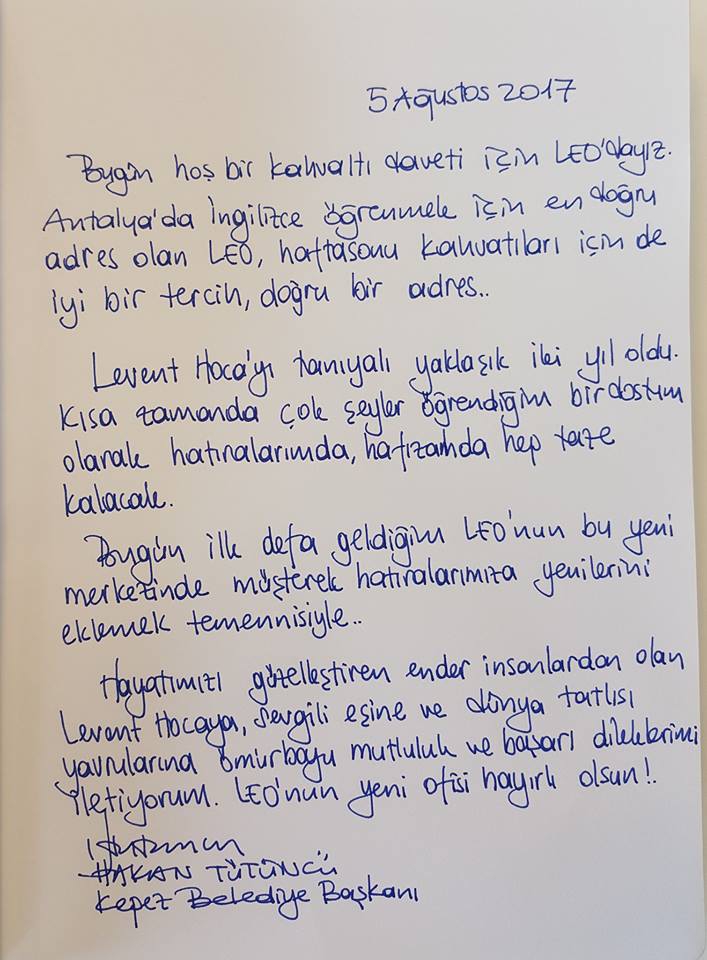 5 Ağustos 2017
Bugün hoş bir kahvaltı daveti için LEO'dayız.
Antalya'da İngilizce öğrenmek için en doğru
adres olan LEO, haftasonu kahvatıları için de
iyi bir tercih, doğru bir adres..
Levent Hoca'yı tanıyalı yaklaşık iki yıl oldu.
Kısa zamanda çok şeyler öğrendiğim bir dostum
olarak hatıralarımda, hafızamda hep taze
kalacak.
Bugün ilk defa geldiğim LEO'nun bu yeni
merkezinde müşterek hatıralarımıza yenilerini
eklemek temennisiyle..
Hayatımızı güzelleştiren ender insanlardan olan
Levent Hocaya, sevgili eşine ve dünya tatlısı
yavrularına ömürboyu mutluluk ve başarı dileklerimi
iletiyorum. LEO'nun yeni ofisi hayırlı olsun!.
HAKAN TÜTÜNCÜ
Kepez Belediye Başkanı